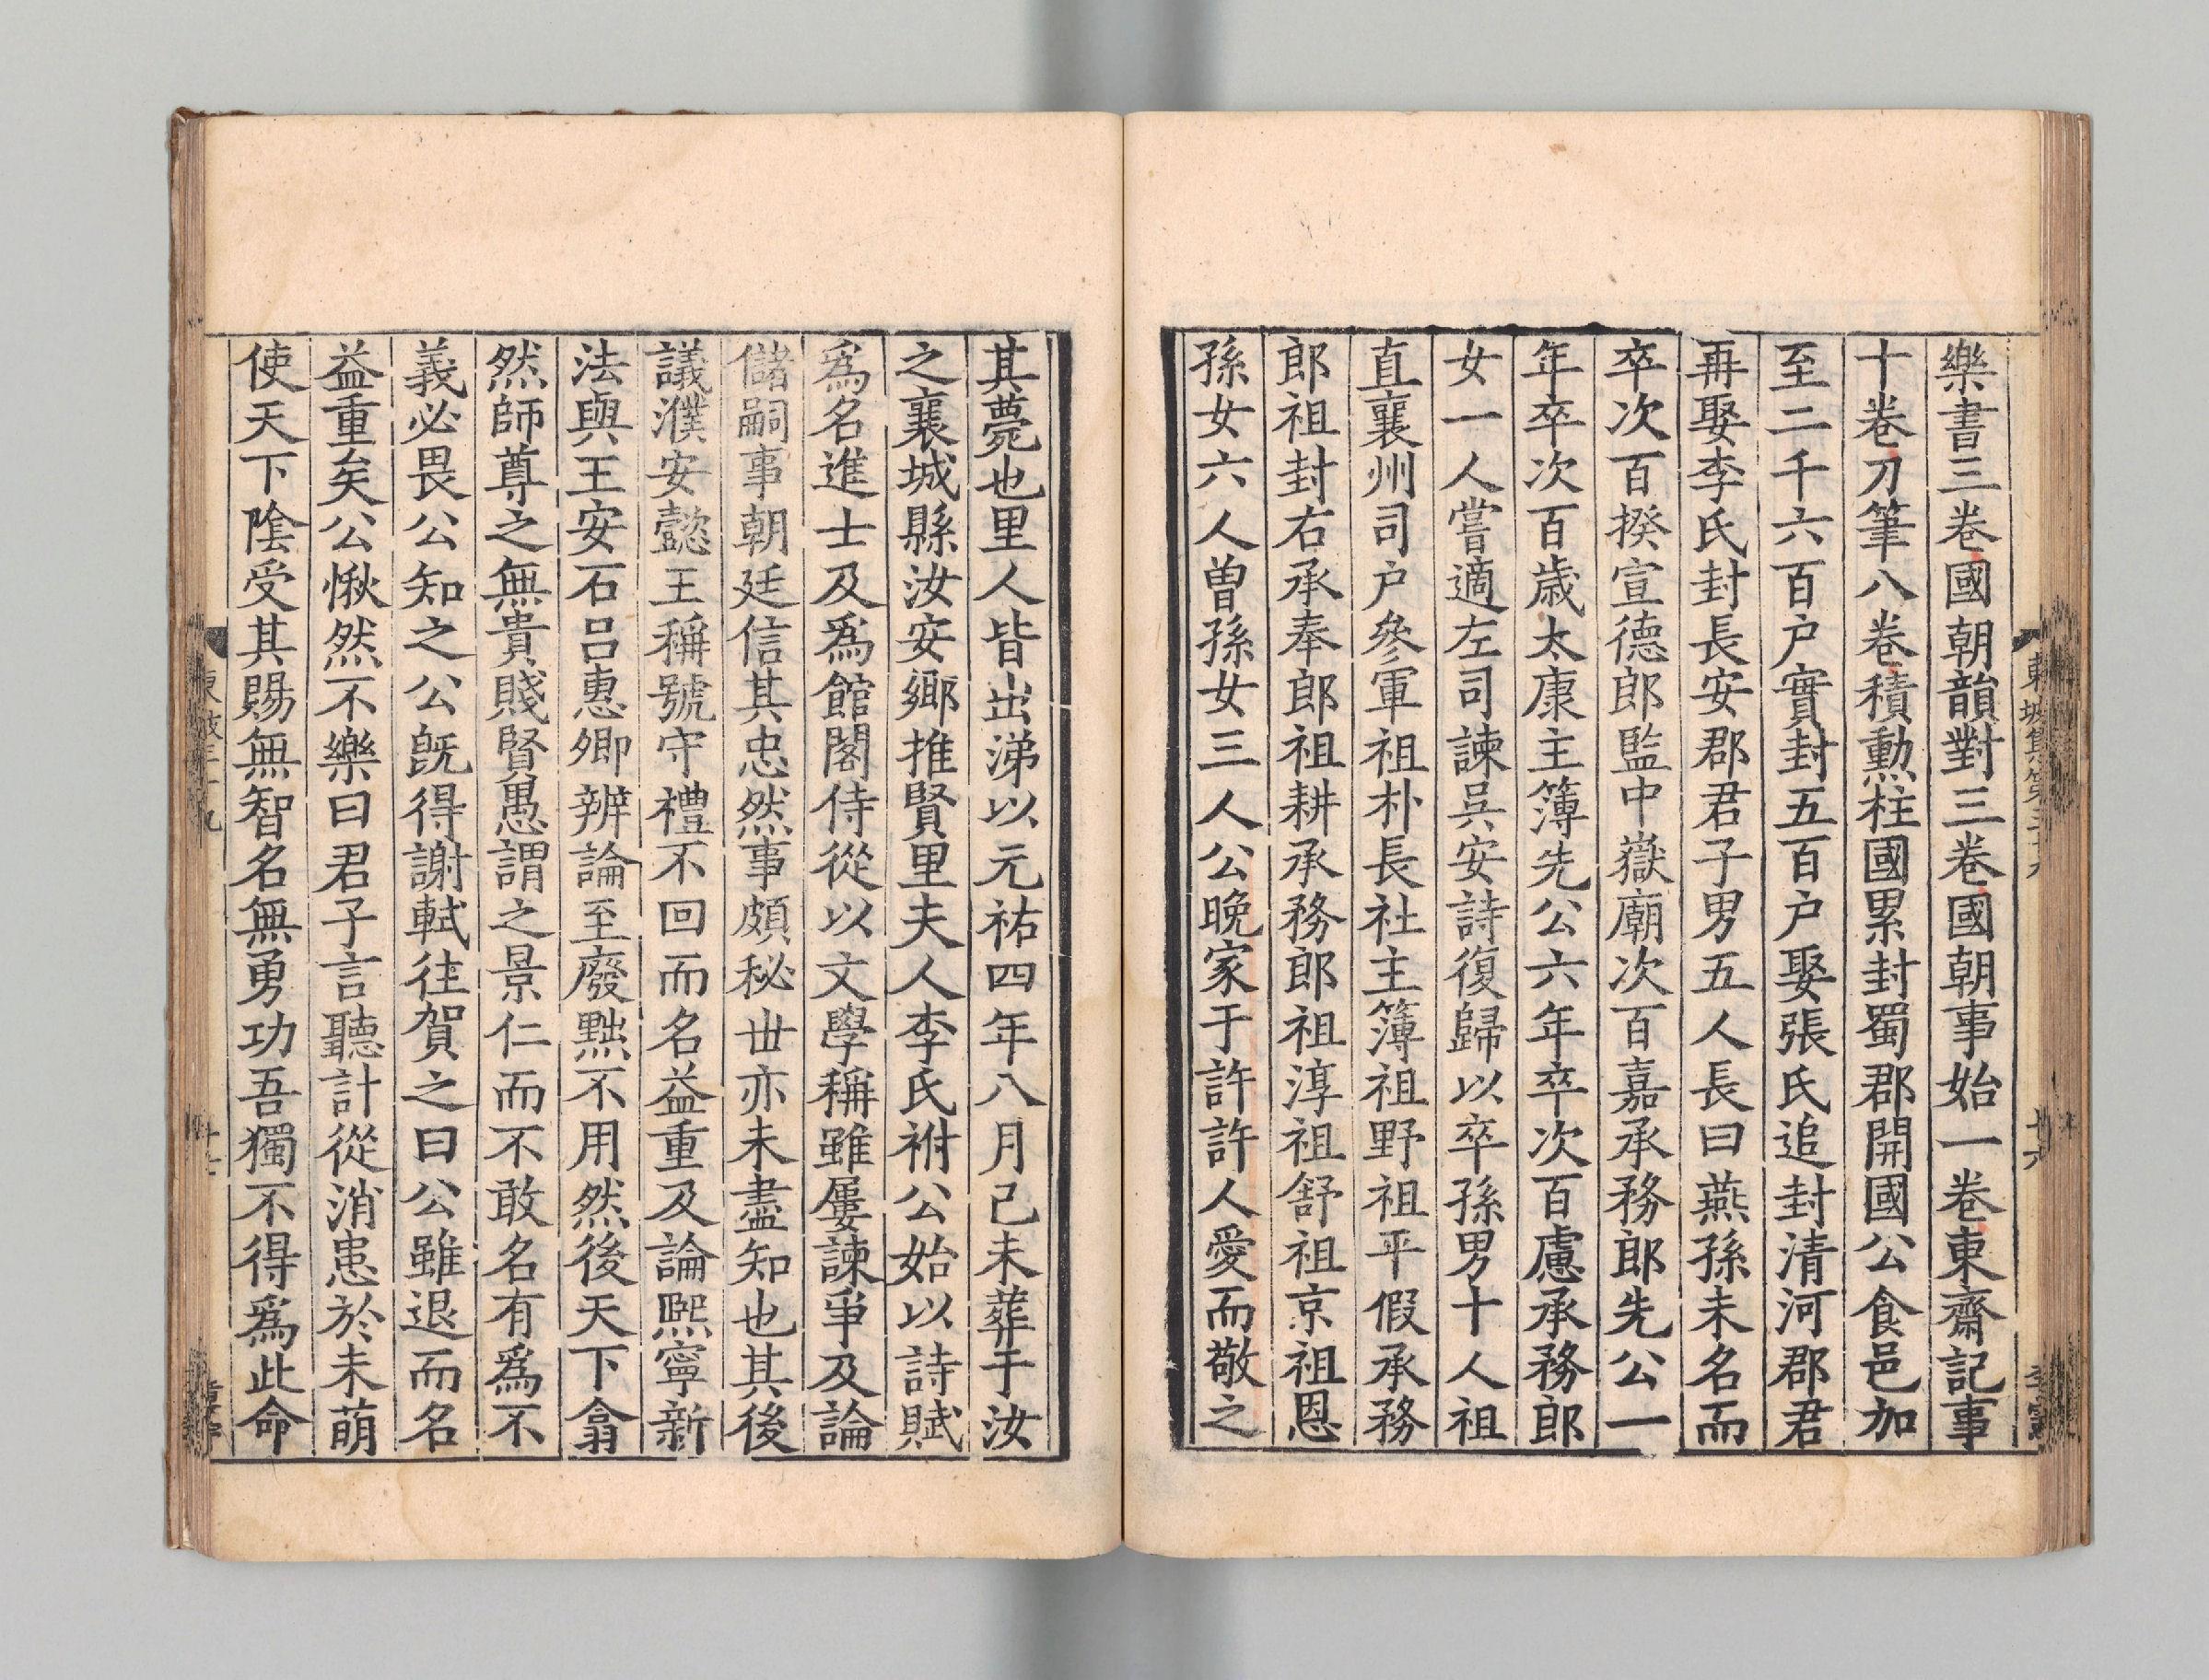 樂書三卷國朝韻對三卷國朝事始一卷東齋記事
十卷刀筆八卷積勲柱國累封蜀郡開國公食邑加
至二千六百户實封五百户娶張氏追封清河郡君
再娶李氏封長安郡君子男五人長曰燕孫未名而
卒次百揆宣德郎監中嶽廟次百嘉承務郎先公一
年卒次百歳太康主簿先公六年卒次百慮承務郎
女一人嘗適左司諫吳安詩復歸以卒孫男十人祖
直襄州司户參軍祖朴長社主簿祖野祖平假承務
郎祖封右承奉郎祖耕承務郎祖淳祖舒祖京祖恩
孫女六人曽孫女三人公晩家于許許人愛而敬之
其薨也里人皆出涕以元祐四年八月己未葬于汝
之襄城縣汝安鄉推賢里夫人李氏祔公始以詩賦
爲名進士及爲館閣侍從以文學稱雖屢諫爭及論
儲嗣事朝廷信其忠然事頗秘丗亦未盡知也其後
議濮安懿王稱號守禮不回而名益重及論熙寧新
法與王安石吕惠卿辨論至廢黜不用然後天下翕
然師尊之無貴賤賢愚謂之景仁而不敢名有爲不
義必畏公知之公旣得謝軾往賀之曰公雖退而名
益重矣公愀然不樂曰君子言聽計從消患於未萌
使天下陰受其賜無智名無勇功吾獨不得爲此命